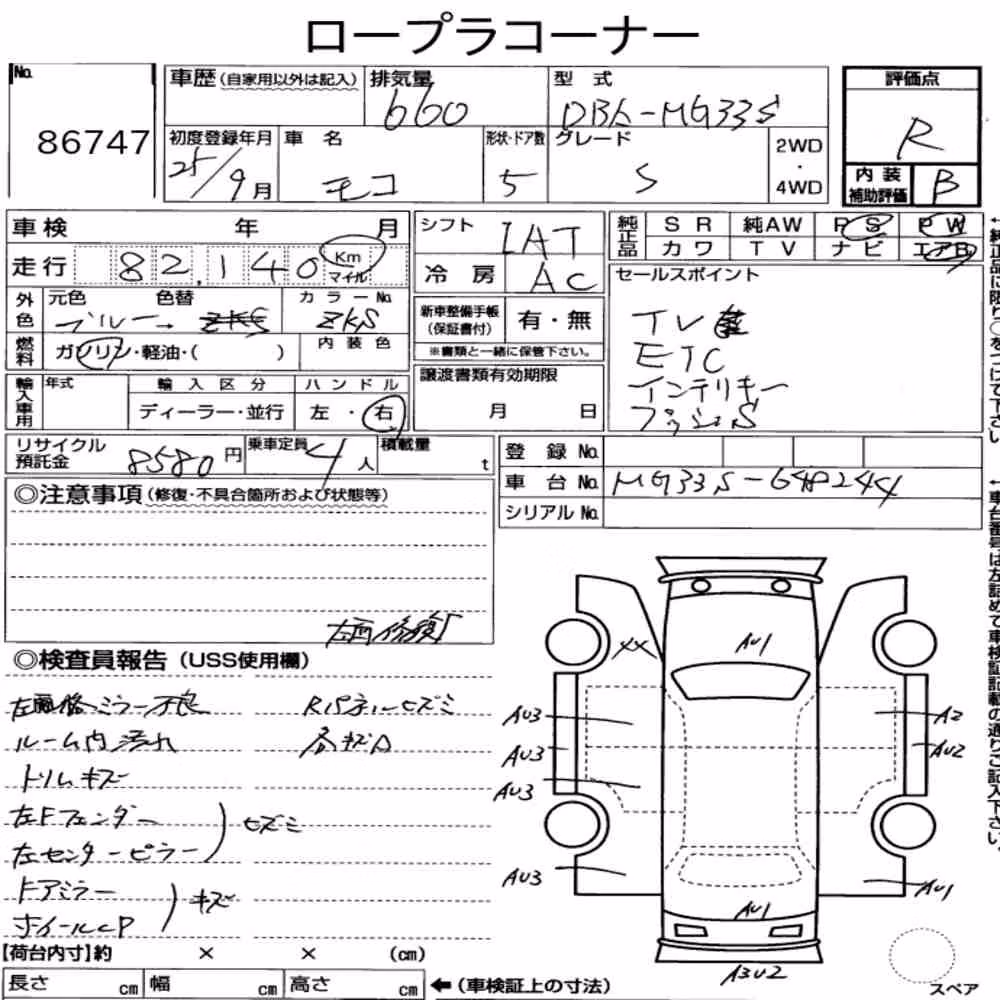 ロープラコーナー
No.
86747
車歴 (自家用以外は記入)
排気量
660
型式
DBA-MG33S
初度登録年月
25/9月
車名
モコ
形状・ドア数
5
グレード
S
2WD
・
4WD
評価点
R
内装
補助評価
B
車検 年 月
走行 82,140 Km
マイル
外色
元色 色替
ブルー→
カラーNo.
ZKS
燃料
ガソリン・軽油・( )
内装色
輸入車用
年式
輸入区分
ディーラー・並行
ハンドル
左・右
シフト
IAT
冷房
AC
新車整備手帳
(保証書付)
有・無
※書類と一緒に保管下さい。
譲渡書類有効期限
月 日
純正品
SR 純AW PS PW
カワ TV ナビ エアB
セールスポイント
TV
ETC
インテリキー
プッシュS
リサイクル
預託金
8580円
乗車定員
4人
積載量
t
登録No.
車台No.
MG33S-648244
シリアルNo.
◎注意事項 (修復・不具合箇所および状態等)
◎検査員報告 (USS使用欄)
左 格ミラー不良
ルーム内汚れ
トリムキズ
左Fフェンダー
左センターピラー
ヒズミ
ドアミラー
ホイールCP
キズ
Rパネルヒズミ
各キズA
XX
AU1
AU3
AU3
AU3
AU3
A2
AU2
AU1
AU1
A3U2
スペア
【荷台内寸】約 × × (cm)
長さ cm 幅 cm 高さ cm
←(車検証上の寸法)
←純正品に限り○をつけて下さい
←車台番号は左詰めて車検証記載の通りご記入下さい。